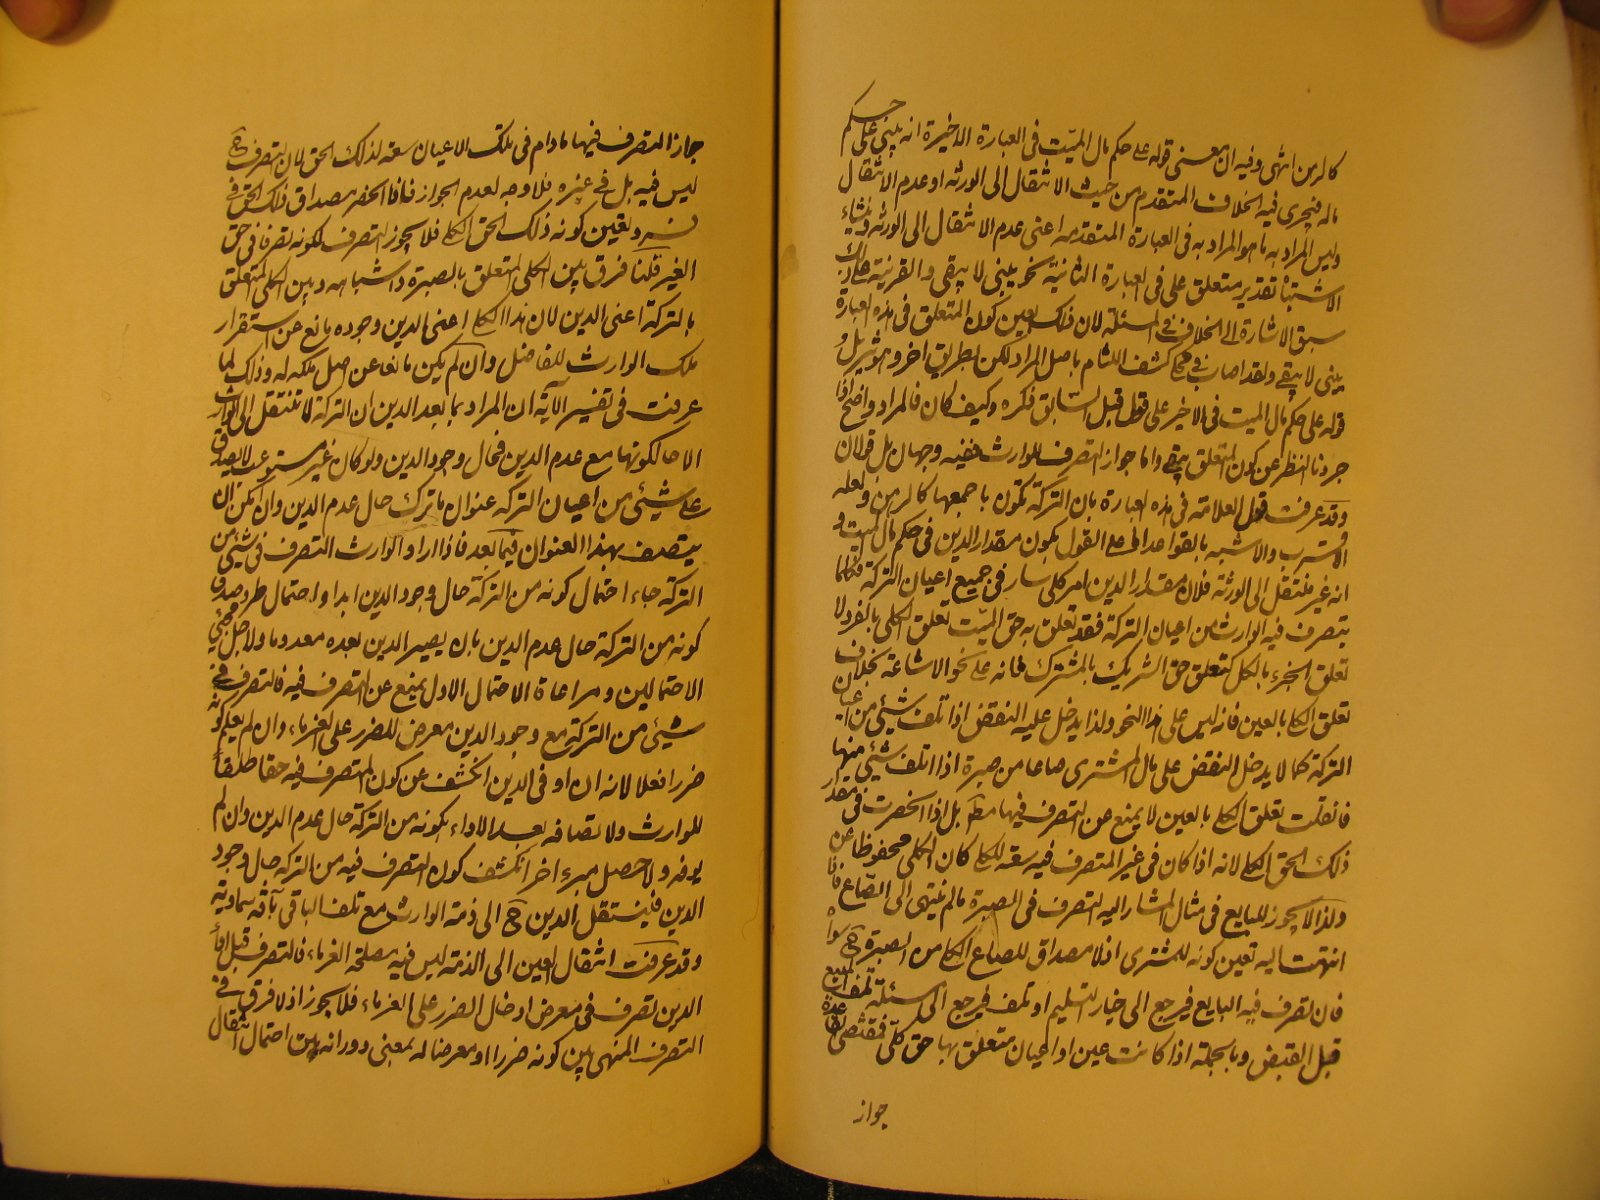 كالرهن انتهى وفيه ان معنى قوله على حكم مال الميّت فى العبارة الاخيرة انه يبنى على حكم
ماله فيجرى فيه الخلاف المتقدم من حيث الانتقال الى الورثه او عدم الانتقال
وليس المراد به ما هو المراد به فى العبارة المتقدمه اعنى عدم الانتقال الى الورثه ومنشاء
الاشتباه تقدير متعلق على فى العبارة الثانية نحو يبنى لا يبقى والقرينة على ذلك
سبق الاشارة الى الخلاف فى المسئلة لان ذلك يعين كون المتعلق فى هذه العبارة
يبنى لا يبقى ولقد اصاب فى محكى كشف اللثام باصل المراد لكن بطريق اخر وهو تنزيل
قوله على حكم مال الميت فى الاخير على قول قبل السّابق فكره وكيف كان فالمراد واضح اذا
جردنا النظر عن كون المتعلق يبقى واما جواز التصرف للوارث ففيه وجهان بل قولان
وقد عرفت قول العلامة فى هذه العبارة بان التركة تكون باجمعها كالرهن ولعله
الاقرب والاشبه بالقواعد اما على القول بكون مقدار الدين فى حكم مال الميت و
انه غير منتقل الى الورثة فلان مقدار الدين امر كلى سار فى جميع اعيان التركة فكلما
يتصرف فيه الوارث من اعيان التركة فقد تعلق به حق الميّت تعلق الكلى بالفرد لا
تعلق الجزء بالكل كتعلق حق الشريك بالمشترك فانه على نحو الاشاعة بخلاف
تعلق الكلى بالعين فانه ليس على هذا النحو ولذا يدخل عليه النقض اذا تلف شيئ من اعيان
التركة كما لا يدخل النقض على مال المشترى صاعا من صبرة اذا تلف شيئ منها
فان قلت تعلق الكلى بالعين لا يمنع عن التصرف فيها مط بل اذا انحصرت فى مقدار
ذلك الحق الكلى لانه اذا كان فى غير المتصرف فيه سعة للكلى كان الكلى محفوظا عن
ولذا لا يجوز للبايع فى مثال المشار اليه التصرف فى الصبرة ما لم ينتهى الى الصّاع فاذا
انتهت اليه تعين كونه للمشترى اذ لا مصداق للصاع الكلى من الصبرة ح سواه
فان تصرف فيه البايع فيرجع الى خيار التسليم او تلف فيرجع الى مسئلة تلف المبيع
قبل القبض وبالجملة اذا كانت عين او اعيان متعلق بها حق كلّى فمقتضى القاعدة
جواز
جواز التصرف فيها مادام فى تلك الاعيان سعة لذلك الحق لان التصرف ح
ليس فيه بل فى غيره فلا وجه لعدم الجواز فاذا انحصر مصداق ذلك الحق فى
فرد وتعين كونه ذلك الحق الكلى فلا يجوز التصرف لكونه تصرفا فى حق
الغير قلنا فرق بين الكلى المتعلق بالصبرة واشباهه وبين الكلى المتعلق
بالتركة اعنى الدين لان هذا الكلى اعنى الدين وجوده مانع عن استقرار
ملك الوارث للفاضل وان لم يكن مانعا عن اصل ملكه له وذلك لما
عرفت فى تفسير الآية ان المراد بما بعد الدين ان التركة لا تنتقل الى الوارث
الا حالكونها مع عدم الدين فحال وجود الدين ولو كان غير مستوعب لا يصدق
على شيئ من اعيان التركة عنوان ما ترك حال عدم الدين وان امكن ان
يتصف بهذا العنوان فيما بعد فاذا اراد الوارث التصرف فى شيئ من
التركة جاء احتمال كونه من التركة حال وجود الدين ابدا واحتمال طرو صدق
كونه من التركة حال عدم الدين بان يصير الدين بعده معدوما ولاجل مجيئ
الاحتمالين ومراعاة الاحتمال الاول يمنع عن التصرف فيه فالتصرف فى
شيئ من التركة مع وجود الدين معرض للضرر على الغرماء وان لم يعلم كونه
ضررا فعلا لانه ان اوفى الدين انكشف عن كون المتصرف فيه حقا طلقا
للوارث ولاتصافه بعد الاداء بكونه من التركة حال عدم الدين وان لم
يوفه ولا حصل مبرء اخر انكشف كون التصرف فيه من التركة حال وجود
الدين فينتقل الدين ح الى ذمة الوارث مع تلف الباقى بآفة سماوية
وقد عرفت انتقال العين الى الذمة ليس فيه مصلحة الغرماء فالتصرف قبل اداء
الدين تصرف فى معرض ادخال الضرر على الغرماء فلا يجوز اذ لا فرق فى
التصرف المنهى بين كونه ضررا او معرضا له بمعنى دورانه بين احتمال انتقال